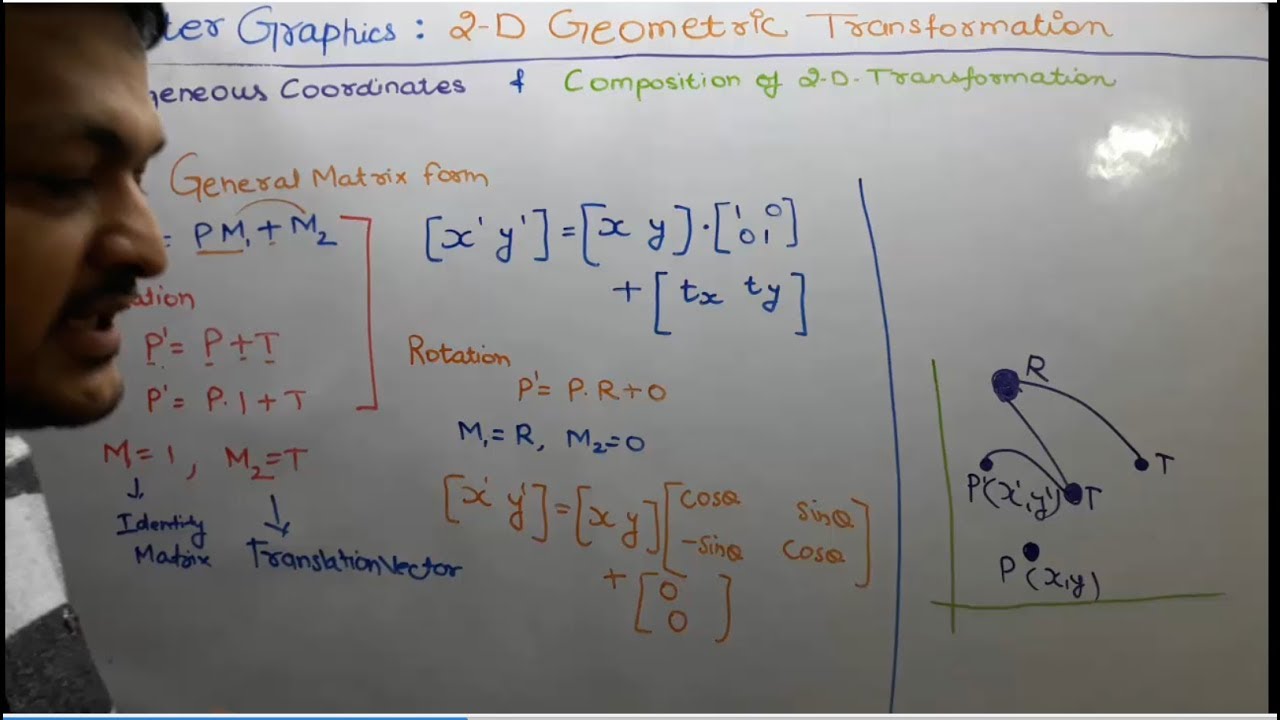 ter Graphics : 2-D Geometric Transformation
geneous Coordinates & Composition of 2-D-Transformation
General Matrix form
= PM₁ + M₂
ation
P' = P + T
P' = P. 1 + T
M₁ = 1 , M₂ = T
Identity
Matrix
Translation Vector
[x' y'] = [x y] . [1 0
0 1]
+ [tx ty]
Rotation
P' = P. R + 0
M₁ = R, M₂ = 0
[x' y'] = [x y] [cosθ sinθ
-sinθ cosθ]
+ [0
0]
R
T
P'(x', y')
T
P (x,y)